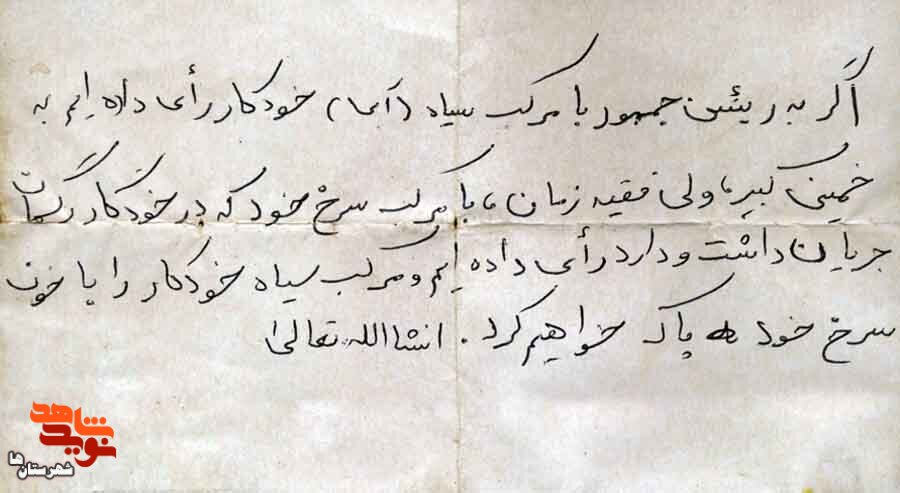 اگر به رئیس جمهور با مرکب سیاه (آبی) خودکار رأی داده ایم به
خمینی کبیر، ولی فقیه زمان، با مرکب سرخ خود که در خودکار رگهایمان
جریان داشت و دارد رأی داده ایم و مرکب سیاه خودکار را با خون
سرخ خود پاک خواهیم کرد. انشاالله تعالی
نوید شاهد
شهرستان ها